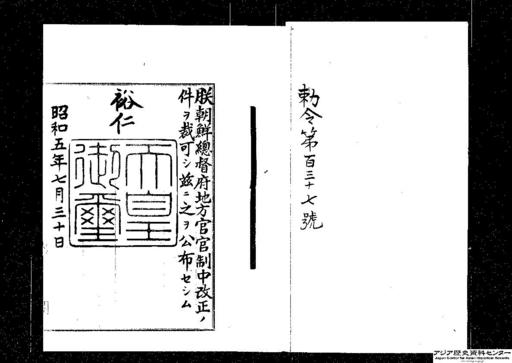 勅令第百三十七號
朕朝鮮總督府地方官官制中改正ノ
件ヲ裁可シ茲ニ之ヲ公布セシム
裕仁
天皇
御璽
昭和五年七月三十日
アジア歴史資料センター
Japan Center for Asian Historical Records